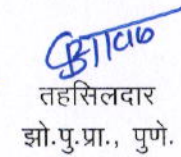 तहसिलदार
झो.पु.प्रा., पुणे.